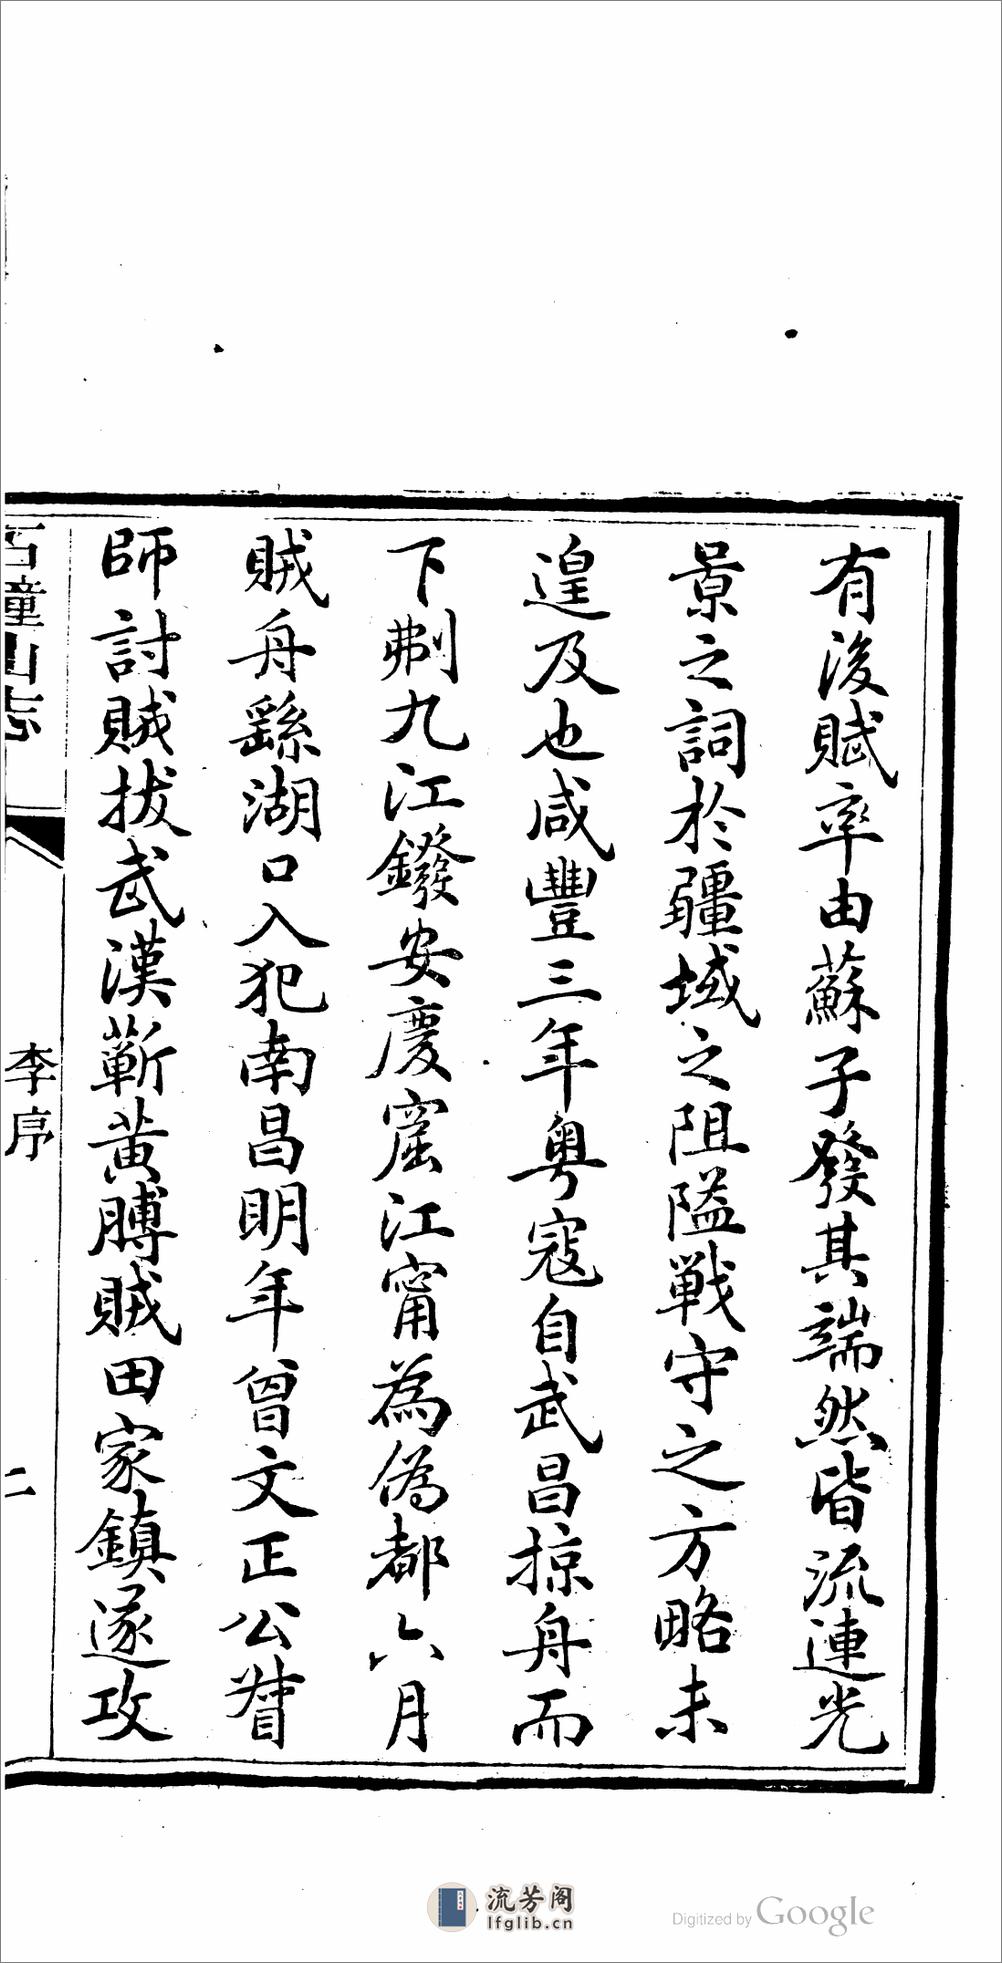 有後賦率由蘇子發其端然皆流連光
景之詞於疆域之阻隘戰守之方略未
遑及也咸豐三年粵寇自武昌掠舟而
下剕九江鏺安慶窟江甯為偽都六月
賊舟繇湖口入犯南昌明年曾文正公督
師討賊拔武漢蘄黃膊賊田家鎮遂攻
石鐘山志
李序
二
流芳阁
lfglib.cn
Digitized by Google